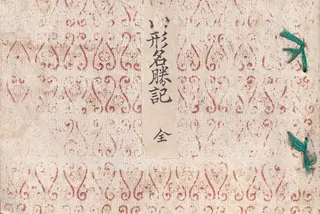 い形名勝記 全